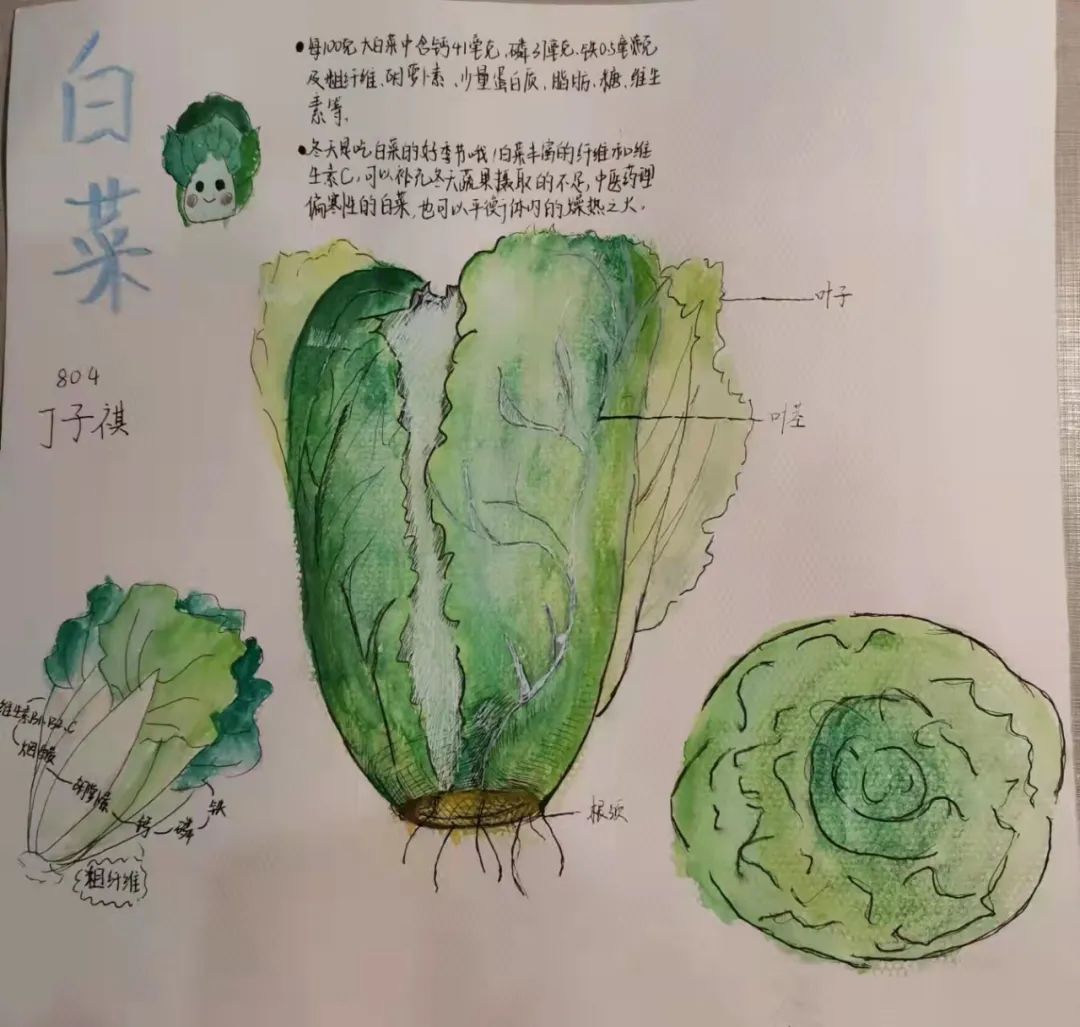 白菜
●每100克大白菜中含钙41毫克、磷31毫克、铁0.5毫克
及粗纤维、胡萝卜素、少量蛋白质、脂肪、糖、维生
素等.
●冬天是吃白菜的好季节哦!白菜丰富的纤维和维
生素C,可以补充冬天蔬果摄取的不足,中医药理
偏寒性的白菜,也可以平衡体内的燥热之火.
叶子
804
丁子祺
叶茎
维生素B1、B2、C
烟酸
胡萝卜素
钙
磷
铁
粗纤维
根须